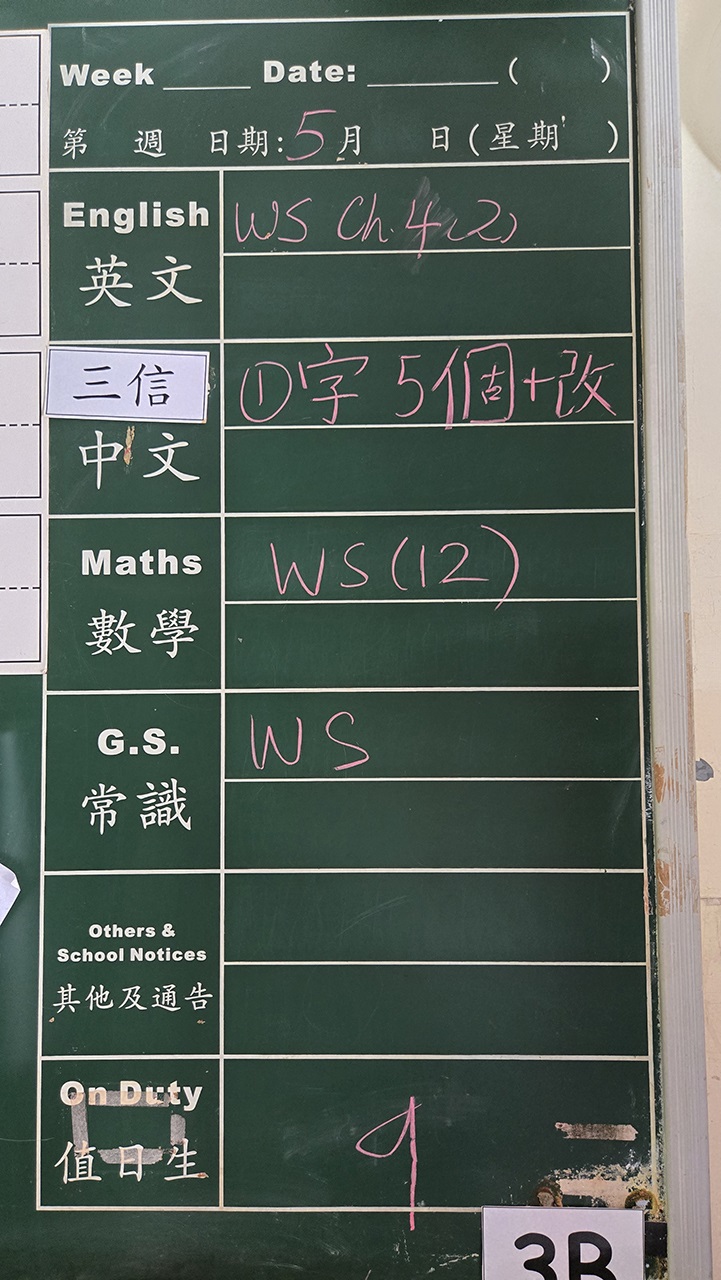 Week _____ Date: ________ (    )
第 週 日期:5月 日(星期 )
English
英文
WS Ch.4(2)
三信
中文
①字 5個+改
Maths
數學
WS(12)
G.S.
常識
WS
Others &
School Notices
其他及通告
On Duty
值日生
9
3B